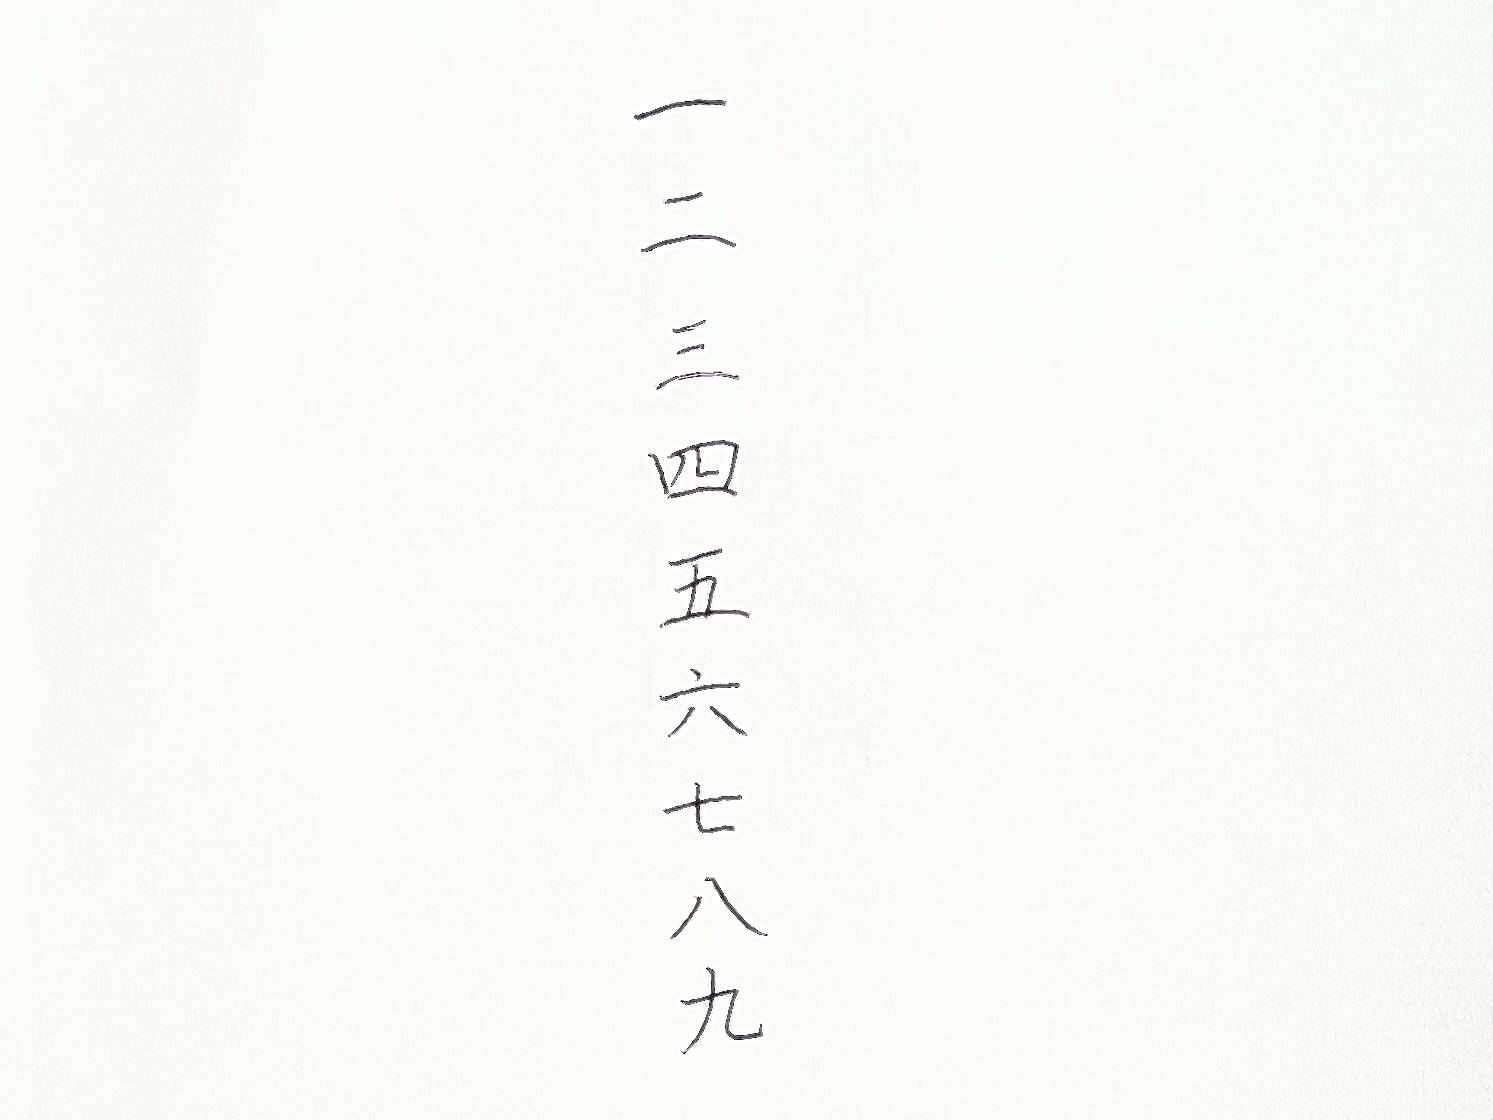 一二三四五六七八九